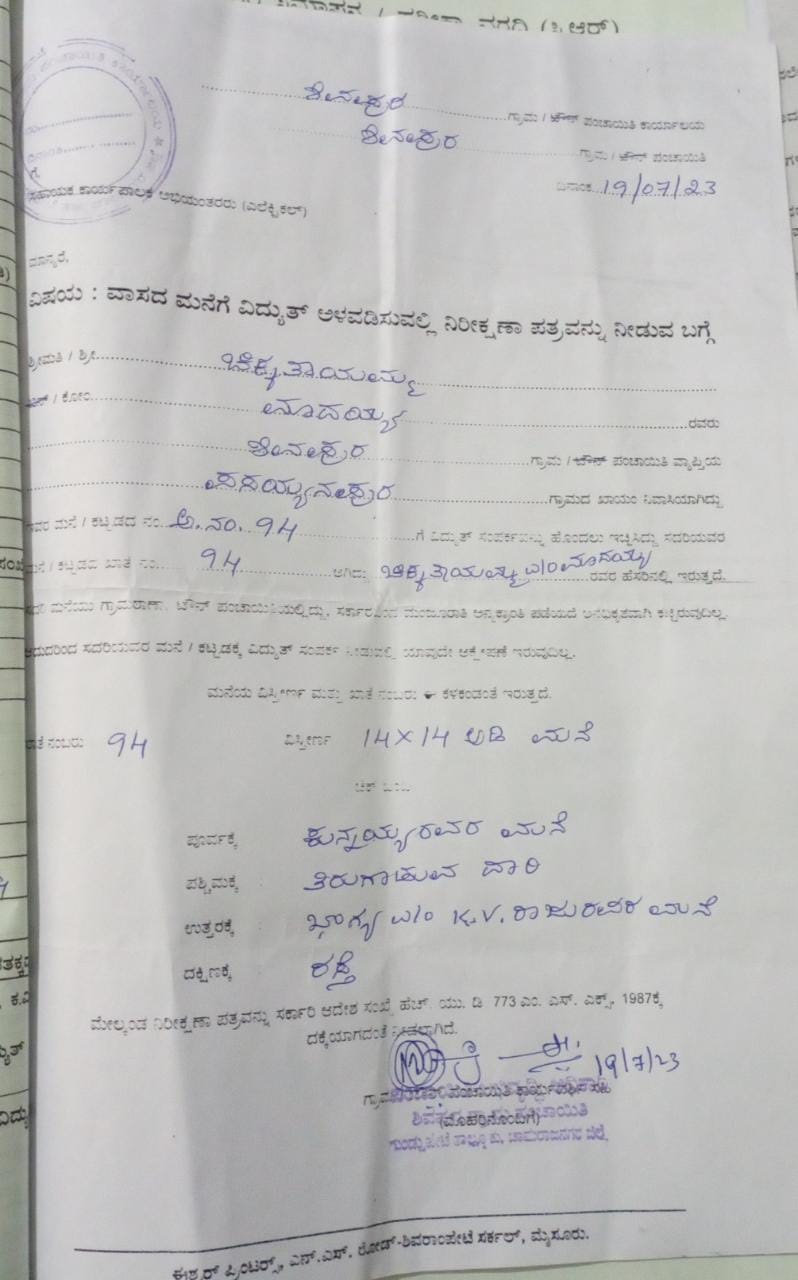 ಶಿವಪುರ ಗ್ರಾಮ / ಟೌನ್ ಪಂಚಾಯಿತಿ ಕಾರ್ಯಾಲಯ
ಶಿವಪುರ ಗ್ರಾಮ / ಟೌನ್ ಪಂಚಾಯಿತಿ
ದಿನಾಂಕ 19/07/23
ಗೆ,
ಸಹಾಯಕ ಕಾರ್ಯಪಾಲಕ ಅಭಿಯಂತರರು (ಎಲೆಕ್ಟ್ರಿಕಲ್)
ಮಾನ್ಯರೆ,
ವಿಷಯ : ವಾಸದ ಮನೆಗೆ ವಿದ್ಯುತ್ ಅಳವಡಿಸುವಲ್ಲಿ ನಿರೀಕ್ಷಣಾ ಪತ್ರವನ್ನು ನೀಡುವ ಬಗ್ಗೆ
ಶ್ರೀಮತಿ / ಶ್ರೀ ಚಿಕ್ಕತಾಯಮ್ಮ
ಬಿನ್ / ಕೋಂ ಮಾದಯ್ಯ ರವರು
ಶಿವಪುರ ಗ್ರಾಮ / ಟೌನ್ ಪಂಚಾಯಿತಿ ವ್ಯಾಪ್ತಿಯ
ಗ್ರಾಮದ ಖಾಯಂ ನಿವಾಸಿಯಾಗಿದ್ದು
ಇವರ ಮನೆ / ಕಟ್ಟಡದ ನಂ. ಅ.ನಂ. 94 ಗೆ ವಿದ್ಯುತ್ ಸಂಪರ್ಕವನ್ನು ಹೊಂದಲು ಇಚ್ಛಿಸಿದ್ದು ಸದರಿಯವರ
ಮನೆ / ಕಟ್ಟಡದ ಖಾತೆ ನಂ. 94 ಆಗಿದ್ದು ಚಿಕ್ಕತಾಯಮ್ಮ w/o ಮಾದಯ್ಯ ರವರ ಹೆಸರಿನಲ್ಲಿ ಇರುತ್ತದೆ.
ಸದರಿ ಮನೆಯು ಗ್ರಾಮಠಾಣಾ, ಟೌನ್ ಪಂಚಾಯಿತಿಯಲ್ಲಿದ್ದು, ಸರ್ಕಾರದಿಂದ ಮಂಜೂರಾತಿ ಪಡೆಯದೆ ಅನಧಿಕೃತವಾಗಿ ಕಟ್ಟಿರುವುದಿಲ್ಲ.
ಆದುದರಿಂದ ಸದರಿಯವರ ಮನೆ / ಕಟ್ಟಡಕ್ಕೆ ವಿದ್ಯುತ್ ಸಂಪರ್ಕ ನೀಡುವಲ್ಲಿ ಯಾವುದೇ ಆಕ್ಷೇಪಣೆ ಇರುವುದಿಲ್ಲ.
ಮನೆಯ ವಿಸ್ತೀರ್ಣ ಮತ್ತು ಖಾತೆ ನಂಬರು ಈ ಕೆಳಕಂಡಂತೆ ಇರುತ್ತದೆ.
ಖಾತೆ ನಂಬರು 94 ವಿಸ್ತೀರ್ಣ 14X14 ಅಡಿ ಮನೆ
ಚೆಕ್ ಬಂದಿ
ಪೂರ್ವಕ್ಕೆ ಕುನ್ನಯ್ಯರವರ ಮನೆ
ಪಶ್ಚಿಮಕ್ಕೆ : ತಿರುಗಾಡುವ ದಾರಿ
ಉತ್ತರಕ್ಕೆ : ಭಾಗ್ಯ w/o K.V. ರಾಜುರವರ ಮನೆ
ದಕ್ಷಿಣಕ್ಕೆ : ರಸ್ತೆ
ಮೇಲ್ಕಂಡ ನಿರೀಕ್ಷಣಾ ಪತ್ರವನ್ನು ಸರ್ಕಾರಿ ಆದೇಶ ಸಂಖ್ಯೆ ಹೆಚ್. ಯು. ಡಿ 773 ಎಂ. ಎಸ್. ಎಕ್ಸ್. 1987ಕ್ಕೆ
ದಕ್ಕೆಯಾಗದಂತೆ ನೀಡಲಾಗಿದೆ.
19/7/23
ಪಂಚಾಯಿತಿ ಕಾರ್ಯದರ್ಶಿ ಸಹಿ
(ಮೊಹರಿನೊಂದಿಗೆ)
ಶಿವಪುರ ಗ್ರಾಮ ಪಂಚಾಯಿತಿ
ಗುಂಡ್ಲುಪೇಟೆ ತಾಲ್ಲೂಕು, ಚಾಮರಾಜನಗರ ಜಿಲ್ಲೆ
ಈಶ್ವರ್ ಪ್ರಿಂಟರ್ಸ್, ಎನ್.ಎಸ್. ರೋಡ್-ಶಿವರಾಂಪೇಟೆ ಸರ್ಕಲ್, ಮೈಸೂರು.